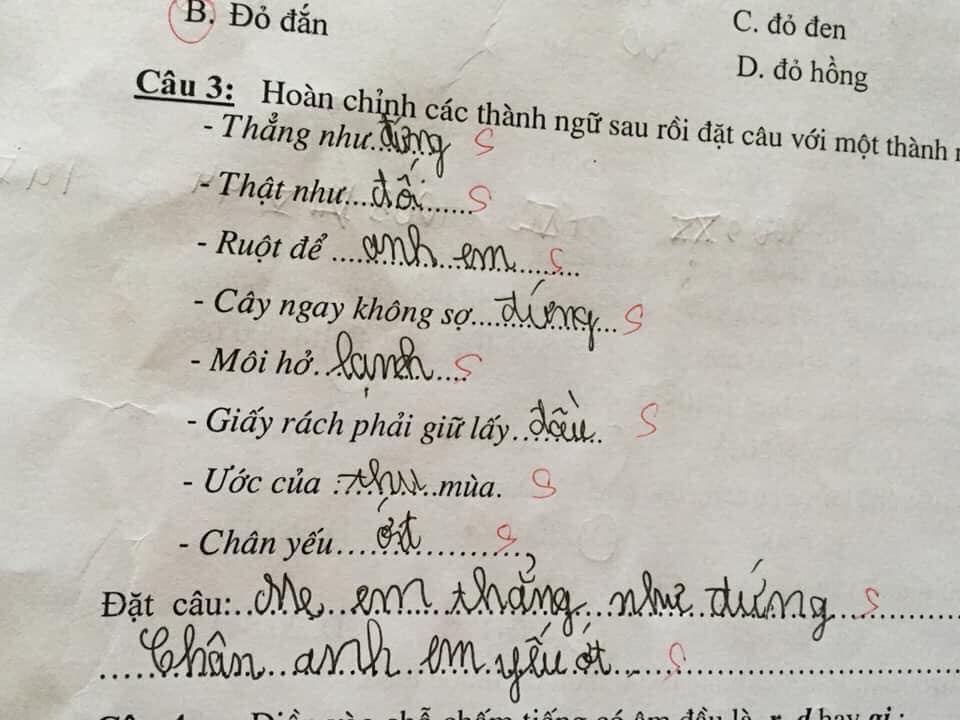 B. Đỏ đắn
C. đỏ đen
D. đỏ hồng
Câu 3: Hoàn chỉnh các thành ngữ sau rồi đặt câu với một thành
- Thẳng như...đứng S
- Thật như...đối...... S
- Ruột để ....anh em........ S
- Cây ngay không sợ....đứng... S
- Môi hở..lạnh.... S
- Giấy rách phải giữ lấy..dầu.. S
- Ước của .thu..mùa. S
- Chân yếu....ớt............ S
Đặt câu:..Mẹ em thẳng như dứng... S
.....Chân anh em yếu ớt.... S